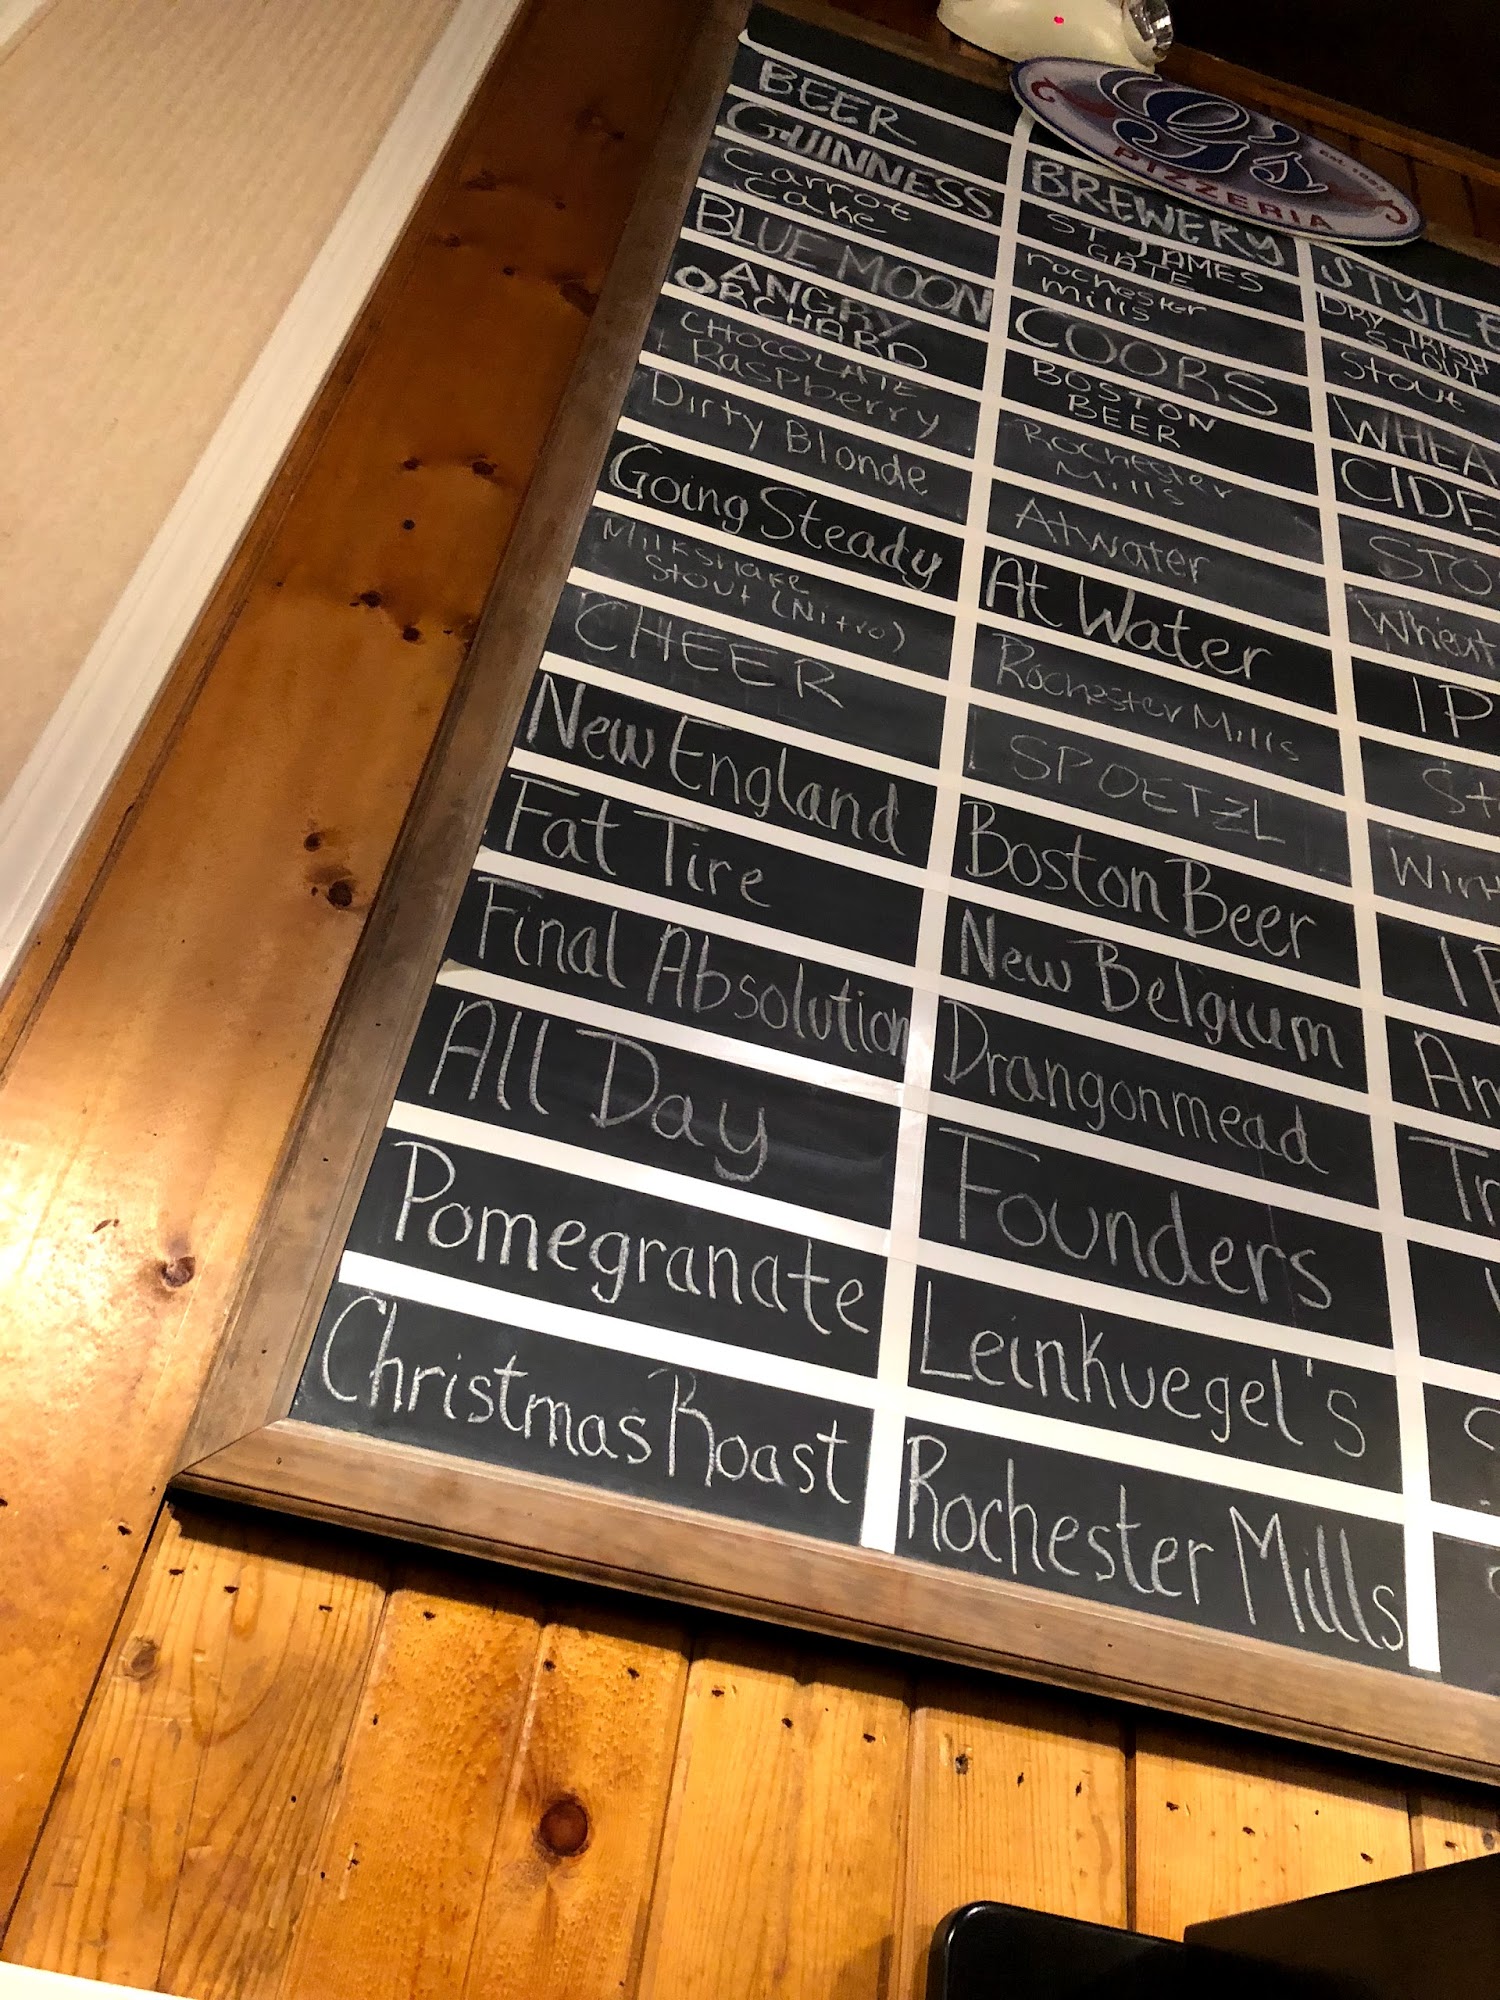 G's
PIZZERIA
BEER BREWERY STYLE
GUINNESS ST. JAMES GATE DRY IRISH STOUT
Carrot Cake rochester mills stout
BLUE MOON COORS WHEA
ANGRY ORCHARD BOSTON BEER CIDE
CHOCOLATE + Raspberry Rochester Mills STO
Dirty Blonde Atwater Wheat
Going Steady At Water IP
Milkshake Stout (Nitro) Rochester Mills St
CHEER SPOETZL Wint
New England Boston Beer IP
Fat Tire New Belgium Am
Final Absolution Drangonmead Tr
All Day Founders
Pomegranate LeinKuegel's
Christmas Roast Rochester Mills